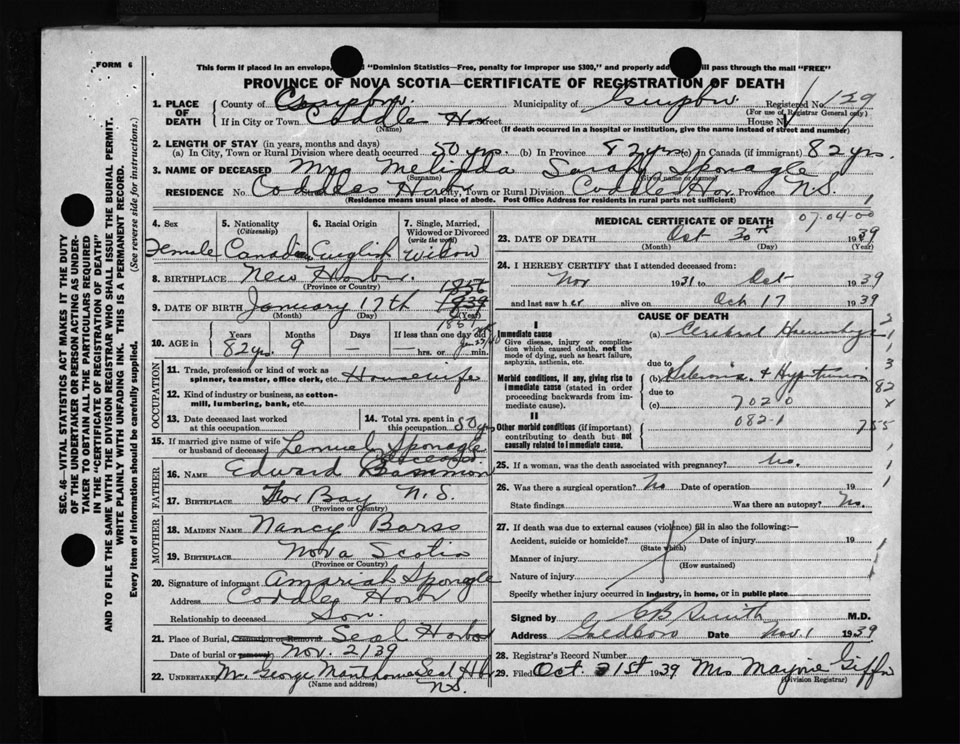 FORM 6
This form if placed in an envelope, "Dominion Statistics—Free, penalty for improper use $300," and properly will pass through the mail "FREE"
PROVINCE OF NOVA SCOTIA—CERTIFICATE OF REGISTRATION OF DEATH
1. PLACE OF DEATH County of Municipality of Guysboro Registered No. 129
(For use of Registrar General only)
If in City or Town Coddle Har Street House No.
(Name) (If death occurred in a hospital or institution, give the name instead of street and number)
2. LENGTH OF STAY (in years, months and days)
(a) In City, Town or Rural Division where death occurred 50 yrs. (b) In Province 82 yrs (c) In Canada (if immigrant) 82 yrs.
3. NAME OF DECEASED Mrs Melinda Sarah Sponagle
(Surname) (Given name or names)
RESIDENCE No. Coddles Harbr City, Town or Rural Division Coddle Har. Province N.S.
(Residence means usual place of abode. Post Office Address for residents in rural parts not sufficient)
4. Sex 5. Nationality (Citizenship) 6. Racial Origin 7. Single, Married, Widowed or Divorced (write the word)
Female Canadian English Widow
8. BIRTHPLACE New Harbr.
(Province or Country)
9. DATE OF BIRTH January 17th 1856 1839
(Month) (Day) (Year)
1857
10. AGE Years Months Days If less than one day old
82 yrs. 9 — — hrs. or min.
OCCUPATION
11. Trade, profession or kind of work as spinner, teamster, office clerk, etc. Housewife
12. Kind of industry or business, as cotton-mill, lumbering, bank, etc.
13. Date deceased last worked at this occupation 14. Total yrs. spent in this occupation 50 yrs
15. If married give name of wife or husband of deceased Lemuel Sponagle
Deceased
FATHER
16. NAME Edward
17. BIRTHPLACE Tor Bay N.S.
(Province or Country)
MOTHER
18. MAIDEN NAME Nancy Barss
19. BIRTHPLACE Nova Scotia
(Province or Country)
20. Signature of informant Amariah Spongle
Address Coddles Harbr
Relationship to deceased Son.
21. Place of Burial, Cremation or Removal Seal Harbor
Date of burial or removal Nov. 2/39
22. UNDERTAKER Mr. George Seal Hbr
(Name and address) N.S.
MEDICAL CERTIFICATE OF DEATH
07-04-00
23. DATE OF DEATH Oct 30th 1939
(Month) (Day) (Year)
24. I HEREBY CERTIFY that I attended deceased from:
Nov 1931 to Oct 1939
and last saw h er alive on Oct 17 1939
CAUSE OF DEATH
I
Immediate cause (a) Cerebral Haemorhage
Give disease, injury or complication which caused death, not the mode of dying, such as heart failure, asphyxia, asthenia, etc.
due to
Morbid conditions, if any, giving rise to immediate cause (stated in order proceeding backwards from immediate cause). (b) & Hypertension
due to
(c) 7020
II 082-1
Other morbid conditions (if important) contributing to death but not causally related to immediate cause.
25. If a woman, was the death associated with pregnancy? No.
26. Was there a surgical operation? No Date of operation 19
State findings Was there an autopsy? No.
27. If death was due to external causes (violence) fill in also the following:—
Accident, suicide or homicide? Date of injury 19
(State which)
Manner of injury
(How sustained)
Nature of injury
Specify whether injury occurred in industry, in home, or in public place
Signed by C B Smith M.D.
Address Goldboro Date Nov. 1 1939
28. Registrar's Record Number
29. Filed Oct. 31st 1939 Mrs Marjorie Giffin
(Division Registrar)
SEC. 46—VITAL STATISTICS ACT MAKES IT THE DUTY
OF THE UNDERTAKER OR PERSON ACTING AS UNDERTAKER TO OBTAIN ALL THE PARTICULARS REQUIRED
IN THE "CERTIFICATE OF REGISTRATION OF DEATH"
AND TO FILE THE SAME WITH THE DIVISION REGISTRAR WHO SHALL ISSUE THE BURIAL PERMIT.
WRITE PLAINLY WITH UNFADING INK. THIS IS A PERMANENT RECORD.
Every item of information should be carefully supplied. (See reverse side for instructions.)